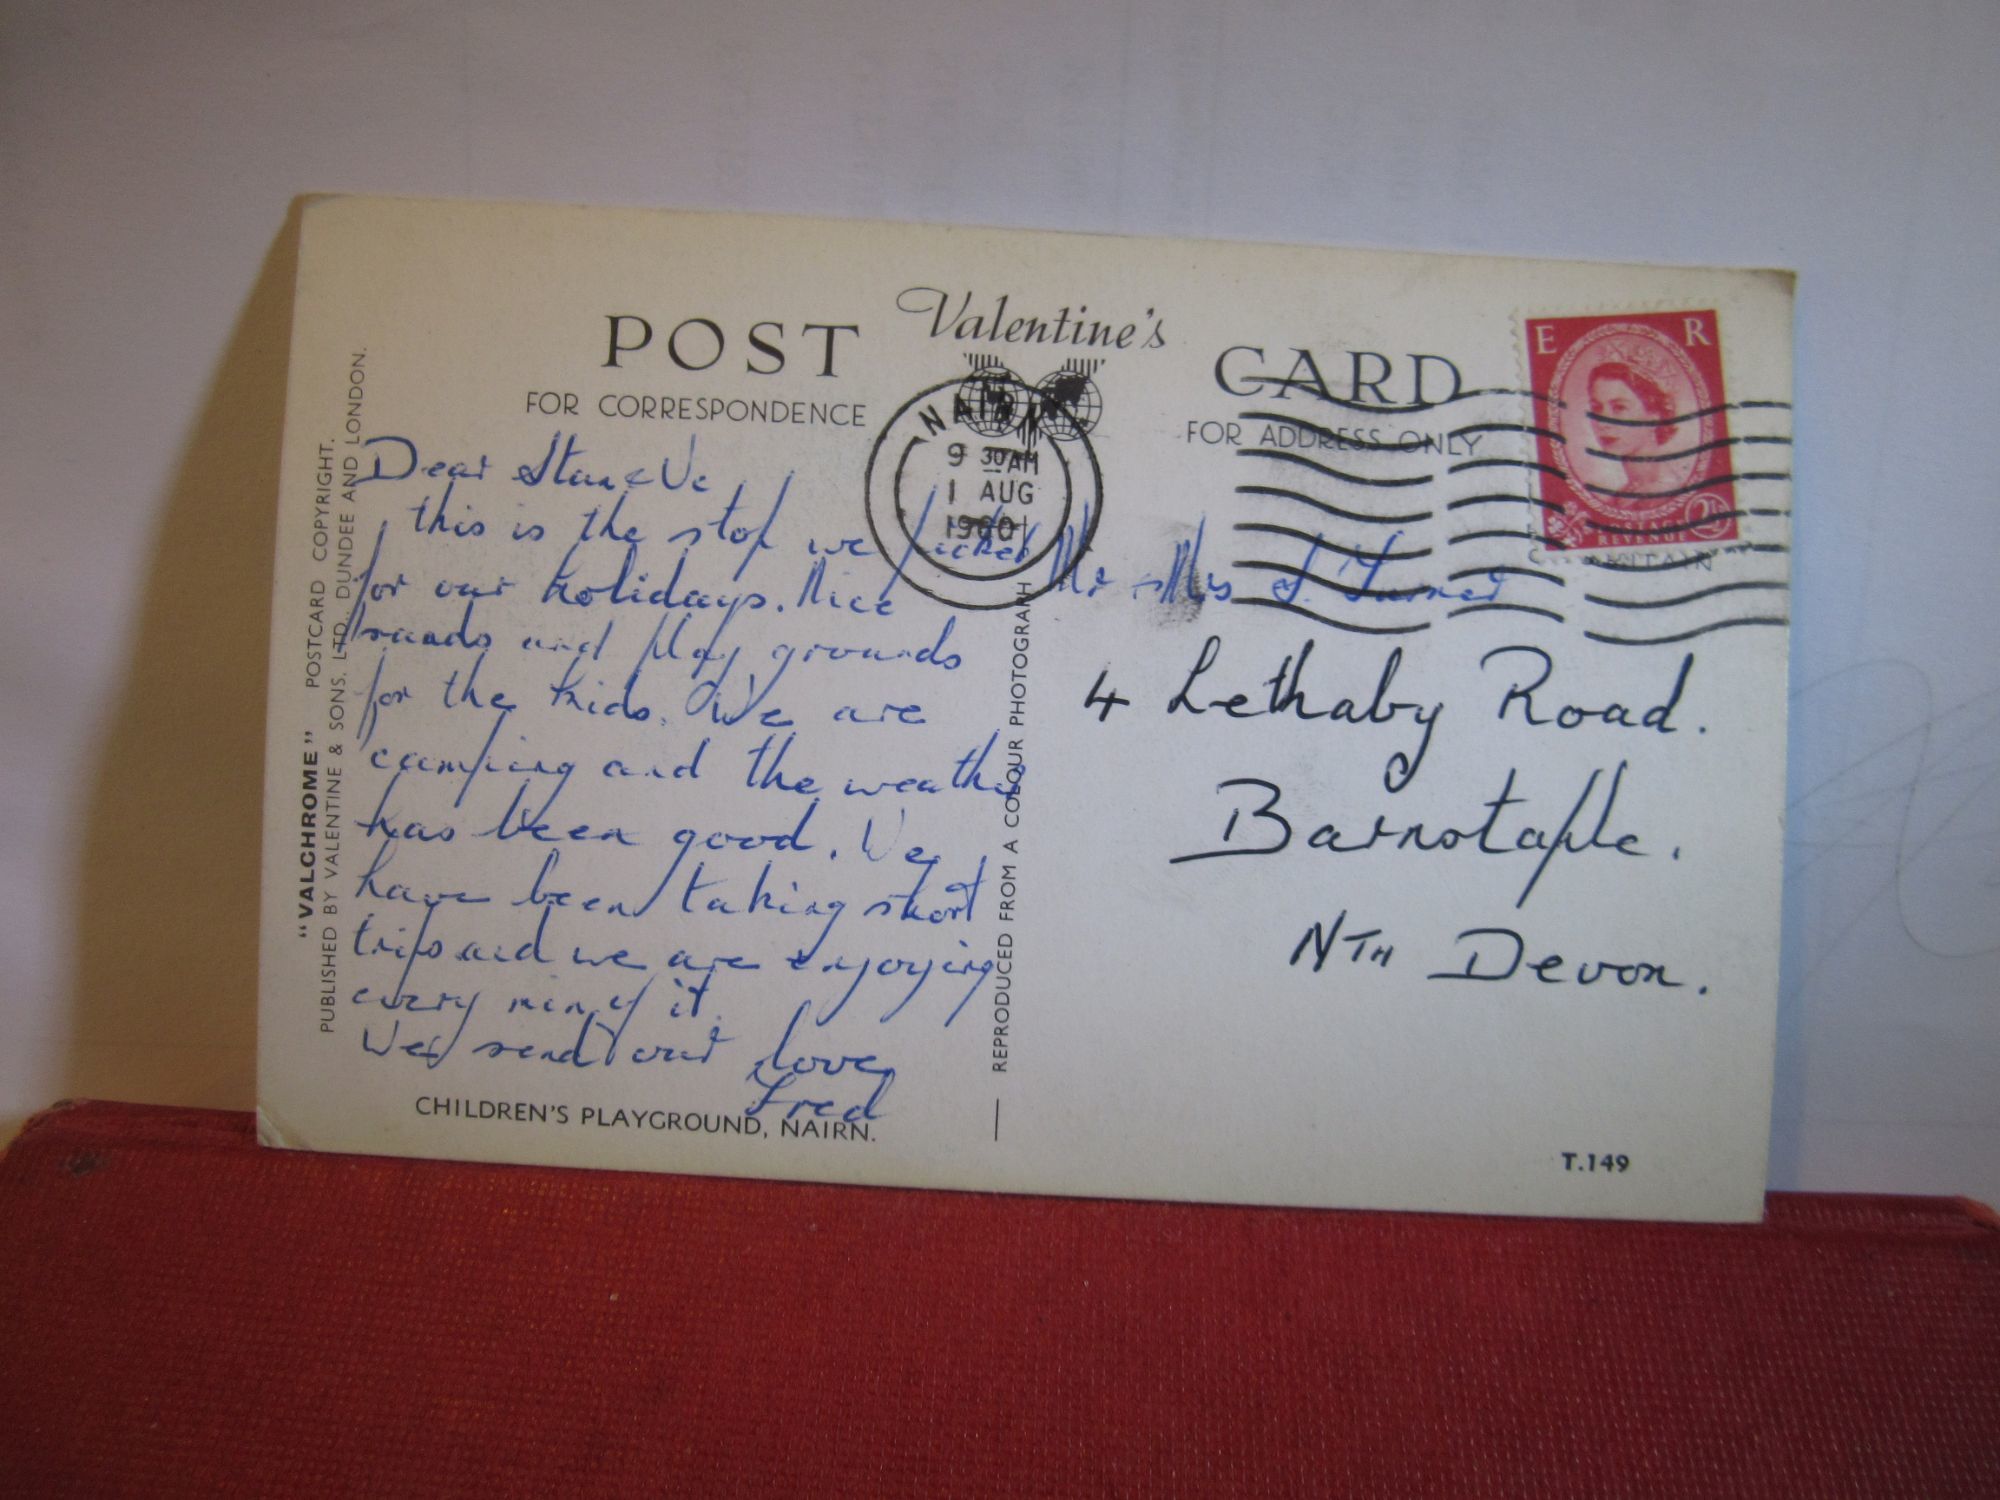 POST Valentine's CARD
FOR CORRESPONDENCE
FOR ADDRESS ONLY
E R
POSTAGE
REVENUE
2½
NAIRN
9 30 AM
1 AUG
1960
Dear Stan & Ve
this is the stop we picked
for our holidays. Nice
sands and play grounds
for the kids. We are
camping and the weather
has been good. We
have been taking short
trips and we are enjoying
every min of it.
We send our love
Fred
CHILDREN'S PLAYGROUND, NAIRN.
"VALCHROME" POSTCARD COPYRIGHT.
PUBLISHED BY VALENTINE & SONS. LTD., DUNDEE AND LONDON.
REPRODUCED FROM A COLOUR PHOTOGRAPH
Mr & Mrs S. Turner
4 Lethaby Road.
Barnstaple.
NTH Devon.
T.149